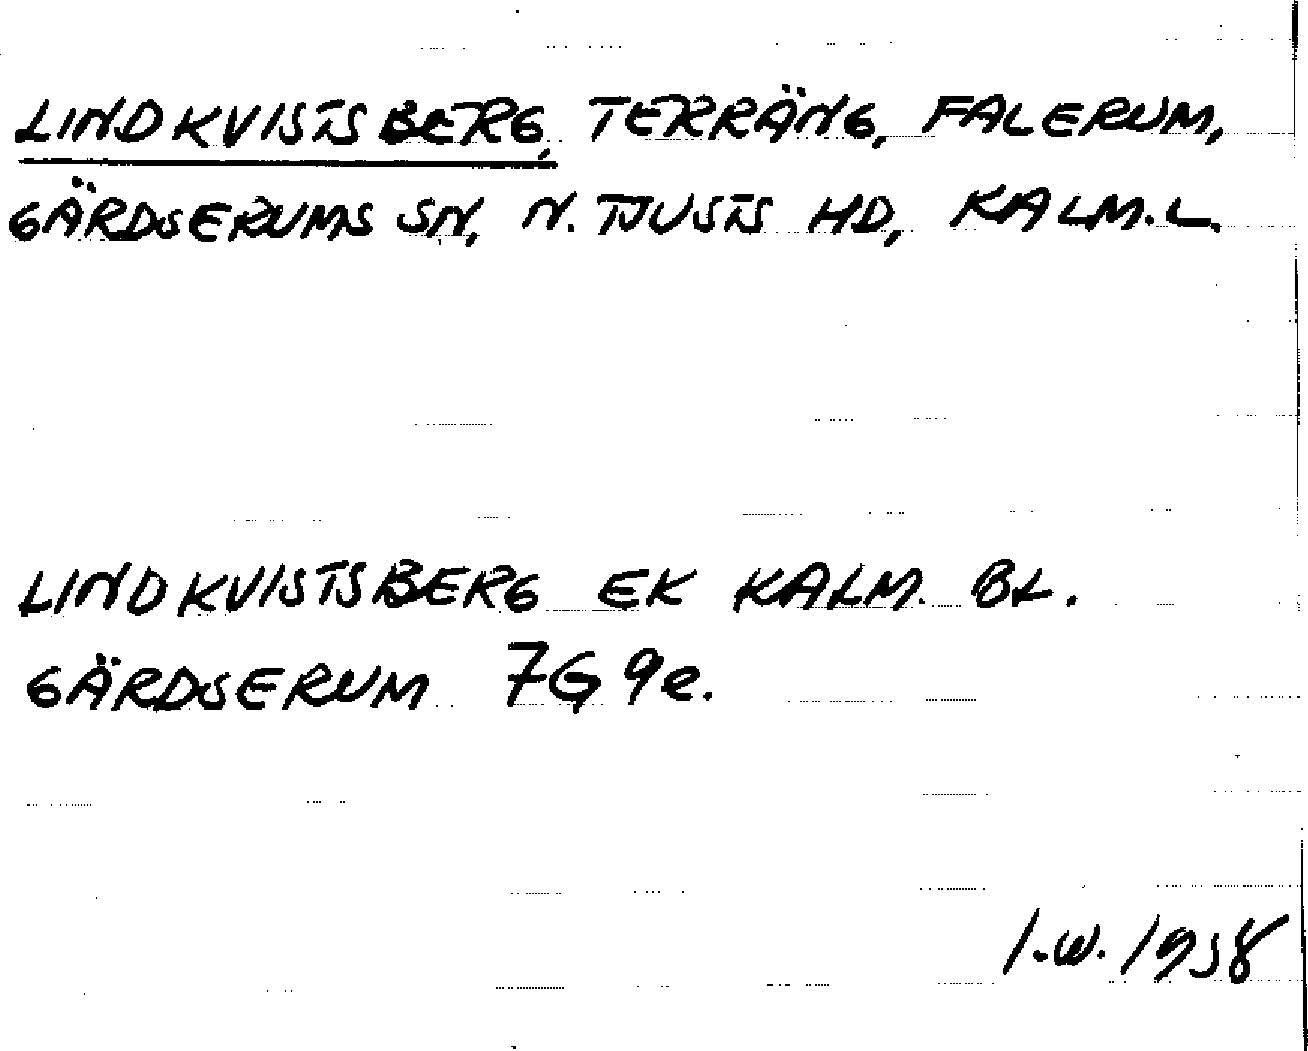 LINDKVISTSBERG, TERRÄNG, FALERUM,
GÄRDSERUMS SN, N. TJUSTS HD, KALM.L.
LINDKVISTSBERG EK KALM. BL.
GÄRDSERUM 7G 9e.
I.W. 1958